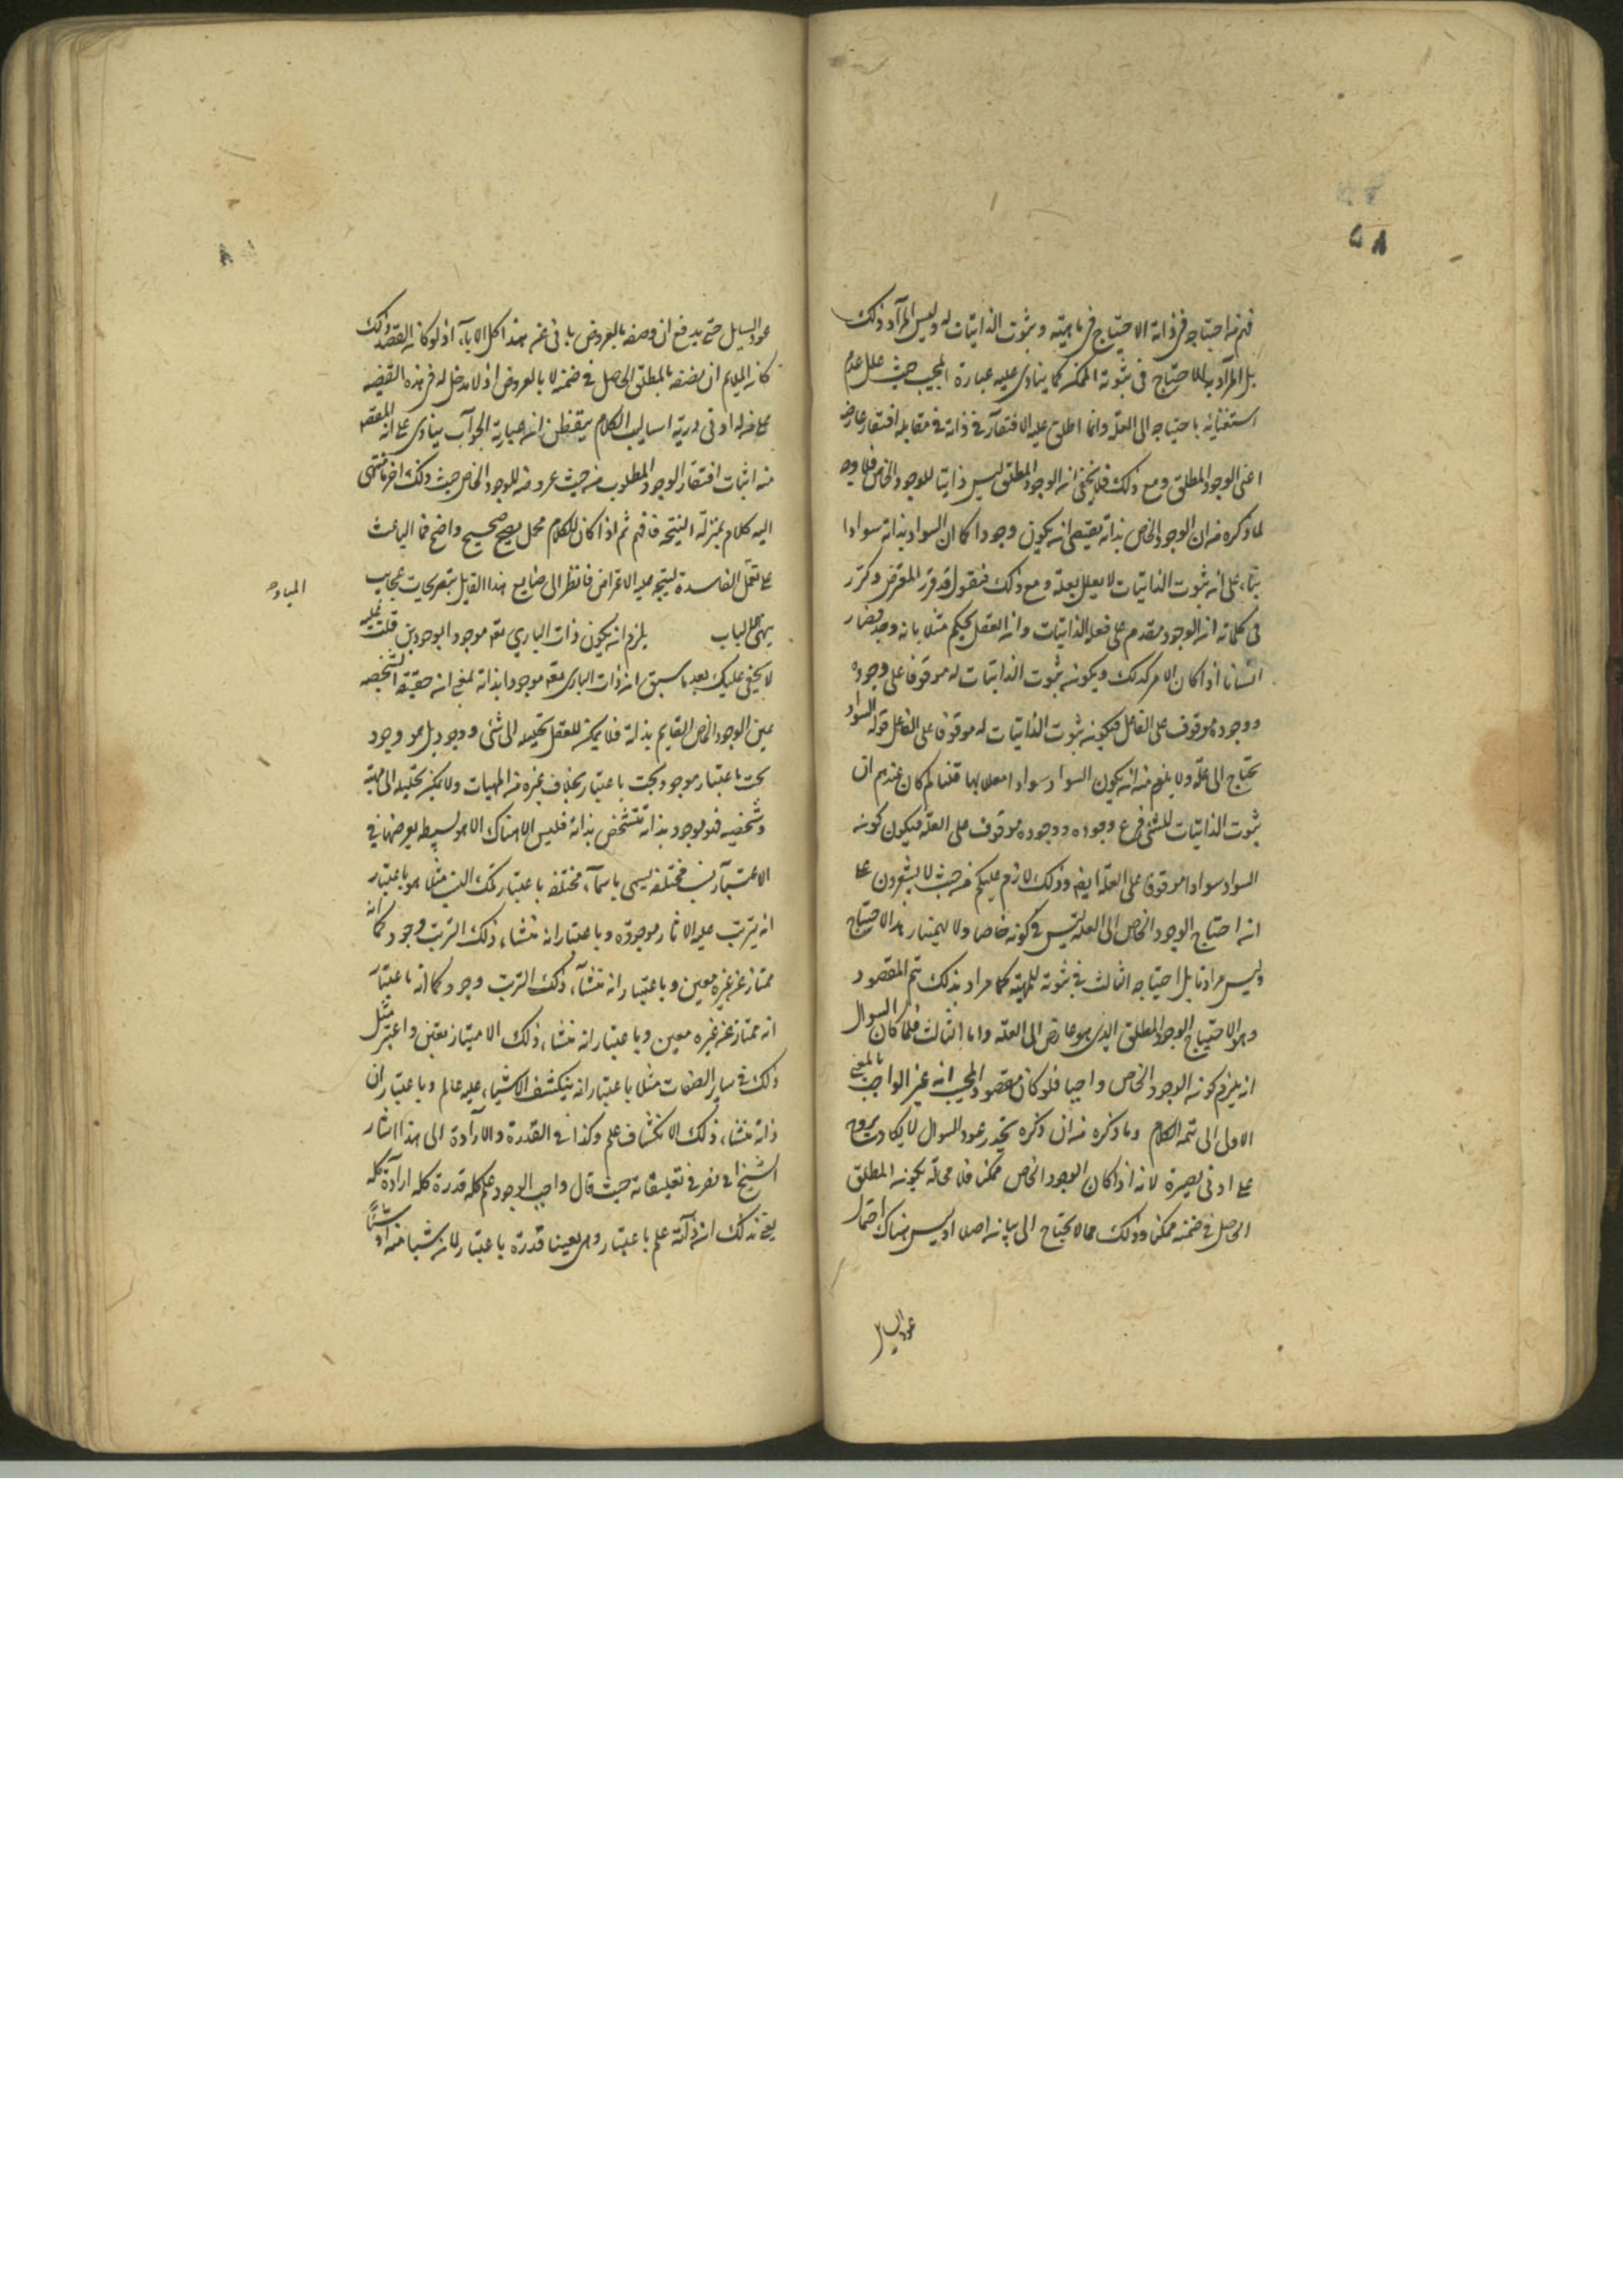 ٥٨
فهم من احتياجه في ذاته الاحتياج في ماهيته وثبوت الذاتيات له وليس المراد ذلك
بل المراد به الاحتياج في ثبوته الممكنه كما ينادى عليه عبارة المجيب حيث علل عدم
استغنائه باحتياجه الى العلة وانما اطلق عليه الافتقار في ذاته في مقابله افتقار عارضه
اعنى الوجود المطلق ومع ذلك فلا يخفى ان الوجود المطلق ليس ذاتيا للوجود الخاص فلا وجه
لما ذكره من ان الوجود الخاص بذاته يقتضى ان يكون وجودا كما ان السواد بذاته سوادا
بناء على ان ثبوت الذاتيات لا يعلل بعلة ومع ذلك فنقول قد قرر المعترض وكرر
في كلماته ان الوجود متقدم على فعلية الذاتيات وان العقل يحكم مثلا بانه وجد فصار
انسانا اذا كان الامر كذلك ويكون ثبوت الذاتيات له موقوفا على وجوده
ووجوده موقوف على الفاعل فيكون ثبوت الذاتيات له موقوفا على الفاعل قوله السواد
يحتاج الى علة ولا يلزم منه ان يكون السواد سوادا معللا بها قلنا لم كان عندهم ان
ثبوت الذاتيات للشئ فرع وجوده ووجوده موقوف على العلة فيكون كونه
السواد سوادا موقوفا على العلة ايضا وذلك لازم عليكم من حيث لا يشعرون على
ان احتياج الوجود الخاص الى العلة ليس في كونه خاصا ولا هذا الاحتياج
وليس مرادنا بل احتياجه الثالث في ثبوته للمهية كما مراد بذلك تتم المقصود
وهو الاحتياج الوجود المطلق الذى هو عارض الى العلة واما الثالث فلما كان السوال
ان يلزم كون الوجود الخاص واجبا فلو كان مقصود المجيب انه غير الواجب بالمعنى
الاول الى تتمة الكلام وما ذكره من ان ذكره عود السوال لا يكاد يروج
على ادنى بصيرة لانه اذا كان الوجود الخاص ممكنا فلا محالة يكون المطلق
الحاصل في ضمنه ممكنا وذلك مما لا يحتاج الى بيانه اصلا وليس هناك احتمال
عود السايل
عود السايل حتى يدفع ان وصفه بالعروض يابى عن هذا كل الاباء اذ لو كان القصد ذلك
كان الملايم ان يصفه بالمطلق الحاصل في ضمنه لا بالعروض اذ لا مدخل له في هذه القضيه
على من له ادنى درية اساليب الكلام يتفطن ان عبارة الجواب ينادى على ان المقصد
منه اثبات افتقار الوجود المطلوب من حيث عروضه للوجود الخاص حيث ذلك اخر ما انتهى
اليه كلام بمنزلة النتيجة فافهم ثم اذا كان للكلام محمل صحيح واضح فما الباعث
على الفاسدة ليتجه عليه الاعتراض فانظر الى صنايع هذا القايل عجايب
الباب يلزم ان يكون ذات الباري تعه موجودا بوجودين قلت
لا يخفى عليك بعد ما سبق ان ذات البارى تعه موجود بذاته لمعنى ان حقيقته الشخصيه
عين الوجود الخاص القايم بذاته فلا يمكن للعقل تحليله الى شئ ووجود بل هو وجود
بحت باعتبار موجود بحت باعتبار بخلاف غيره من المهيات ولا يمكن تحليله الى مهية
وشخصيه فهو موجود بذاته متشخص بذاته فليس هناك الا هو بسيطه يعرضها في
الاعتبار نسب مختلفه يسمى باسماء مختلفه باعتبار تلك النسب مثلا هو باعتبار
انه يترتب عليه الاثار موجوده وباعتبار انه منشاء ذلك الترتب وجود كما انه
ممتاز عن غيره معين وباعتبار انه منشاء ذلك الترتب وجود كما انه باعتبار
انه ممتاز عن غيره معين وباعتبار انه منشاء ذلك الامتياز تعين واعتبر مثل
ذلك في ساير الصفات مثلا باعتبار انه ينكشف الاشياء عليه عالم وباعتبار ان
ذاته منشاء ذلك الانكشاف علم وكذا في القدرة والارادة الى هذا اشار
الشيخ ابى نصر في تعليقاته حيث قال واجب الوجود علم كله قدرة كله ارادة كله
يعنى بذلك ان ذاته علم باعتبار وهى بعينها قدرة باعتبار لا ان شيئا منه